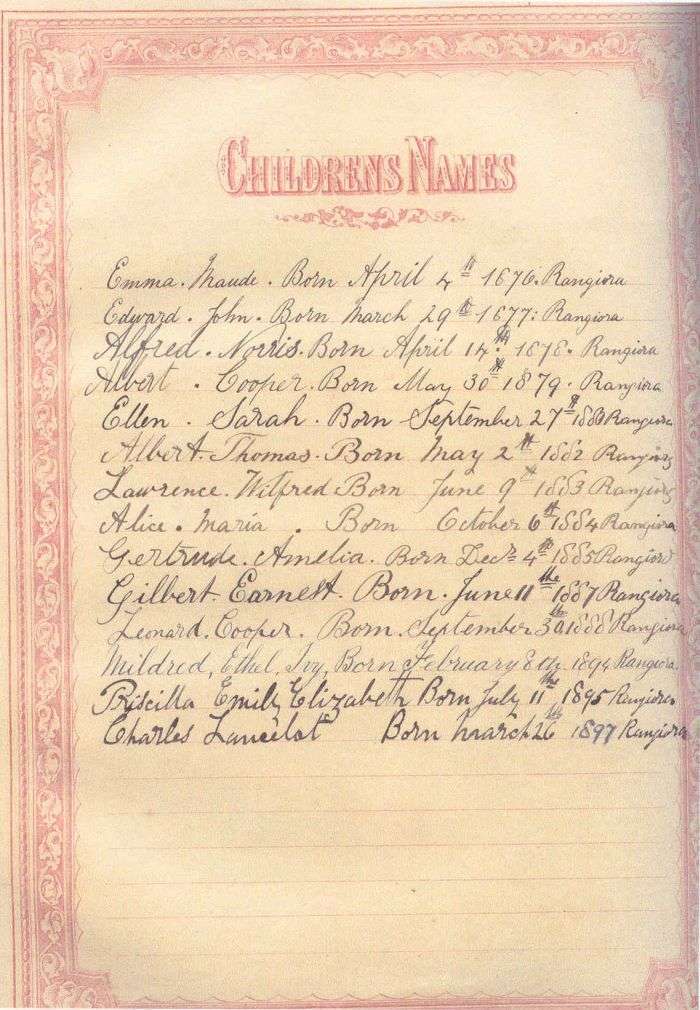 CHILDRENS NAMES
Emma. Maude. Born April 4th 1876. Rangiora
Edward. John. Born March 29th 1877: Rangiora
Alfred. Norris. Born April 14th. 1878. Rangiora
Albert. Cooper. Born May 30th 1879. Rangiora
Ellen. Sarah. Born September 27th 1880 Rangiora
Albert. Thomas. Born May 2th 1882 Rangiora
Lawrence. Wilfred Born June 9th 1883 Rangiora
Alice. Maria. Born October 6th 1884 Rangiora
Gertrude. Amelia. Born Decr 4th 1885 Rangiora
Gilbert. Earnest. Born. June 11the 1887 Rangiora
Leonard. Cooper. Born. September 30the 1888 Rangiora
Mildred, Ethel, Ivy, Born February 8th. 1894 Rangiora
Priscilla Emily Elizabeth Born July 11the 1895 Rangiora
Charles Lancelot Born March 26th 1897 Rangiora